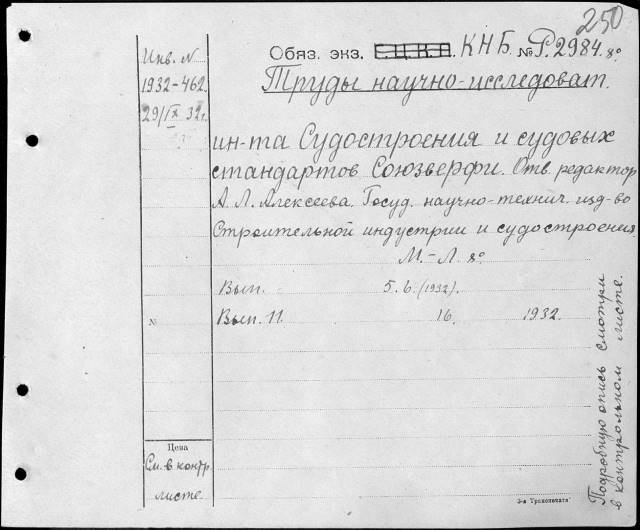 250
Инв. N
1932-462.
29/IX 32 г.
Обяз. экз. Е.Ц.К.П. КНБ. № Р.2984. 8º
Труды научно-исследоват.
ин-та Судостроения и судовых
стандартов Союзверфи. Отв. редактор
А. Л. Алексеева. Госуд. научно-технич. изд-во
Строительной индустрии и судостроения
М.-Л. 8º
Вып. 5. 6. (1932).
№ Вып. 11. 16. 1932.
Цена
См. в контр.
листе.
Подробную опись смотри
в контрольном листе.
3-я Транспечати